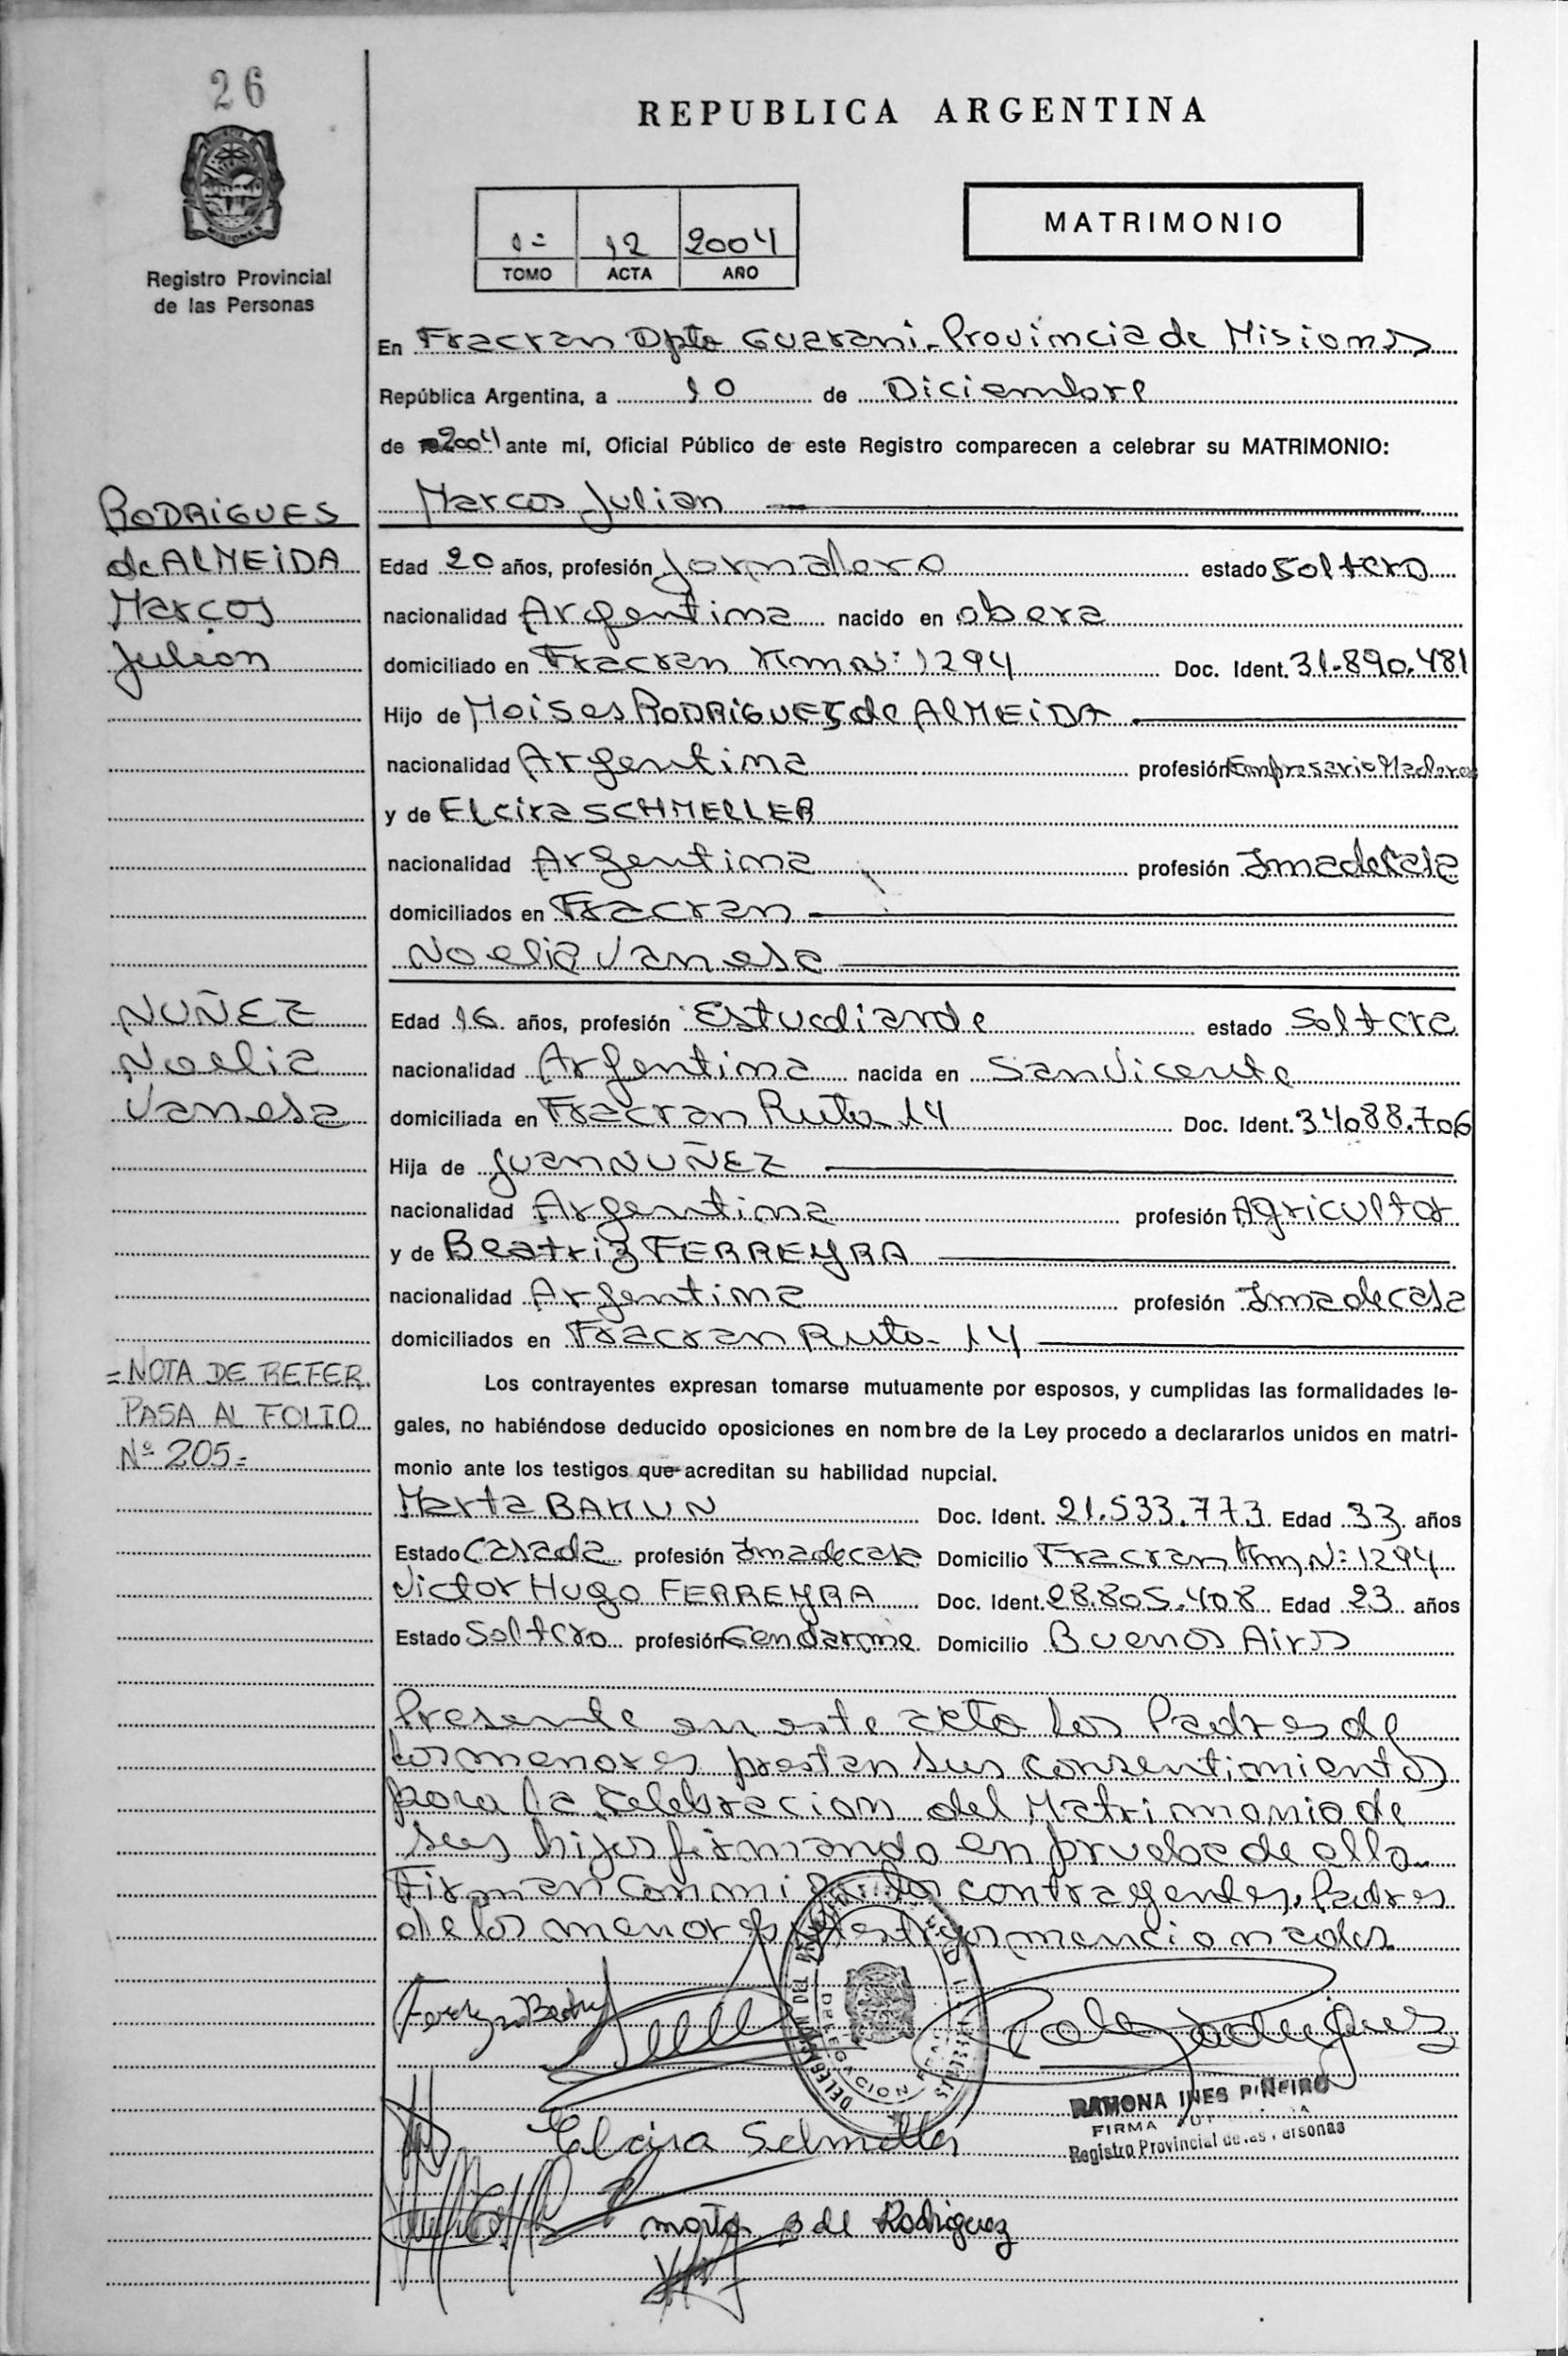 26
REPUBLICA ARGENTINA
MISIONES
Registro Provincial
de las Personas
1= 12 2004
TOMO ACTA AÑO
MATRIMONIO
En Fracran Dpto Guarani-Provincia de Misiones
República Argentina, a 10 de Diciembre
de 2004 ante mi, Oficial Público de este Registro comparecen a celebrar su MATRIMONIO:
Marcos Julian
RODRIGUES
de ALMEIDA
Marcos
Julian
Edad 20 años, profesión Jornalero estado Soltero
nacionalidad Argentina nacido en obera
domiciliado en Fracran Km Nº 1294 Doc. Ident. 31.890.481
Hijo de Moises RODRIGUES de ALMEIDA
nacionalidad Argentina profesión Empresario Maderero
y de Elcira SCHMELLER
nacionalidad Argentina profesión Ama de Casa
domiciliados en Fracran
Noelia Vanesa
NUÑEZ
Noelia
Vanesa
Edad 16 años, profesión Estudiante estado Soltera
nacionalidad Argentina nacida en San Vicente
domiciliada en Fracran Ruta 14 Doc. Ident. 34.088.706
Hija de Juan NUÑEZ
nacionalidad Argentina profesión Agricultor
y de Beatriz FERREYRA
nacionalidad Argentina profesión Ama de casa
domiciliados en Fracran Ruta- 14
=NOTA DE REFER.
PASA AL FOLIO
Nº 205=
Los contrayentes expresan tomarse mutuamente por esposos, y cumplidas las formalidades le-
gales, no habiéndose deducido oposiciones en nombre de la Ley procedo a declararlos unidos en matri-
monio ante los testigos que acreditan su habilidad nupcial.
Marta BAHUN Doc. Ident. 21.533.773 Edad 33 años
Estado Casada profesión Ama de casa Domicilio Fracran, Km Nº 1294
Victor Hugo FERREYRA Doc. Ident. 28.805.408 Edad 23 años
Estado Soltero profesión Gendarme Domicilio Buenos Aires
Presente en este acto los Padres de
los menores prestan sus consentimientos
para la celebracion del Matrimonio de
sus hijos firmando en prueba de ello.
Firman con mi go los contrayentes, Padres
de los menores y testigos mencionados
DELEGACION
Elcira Schmeller
RAMONA INES PIÑEIRO
FIRMA
Registro Provincial de las Personas
marta B de Rodriguez